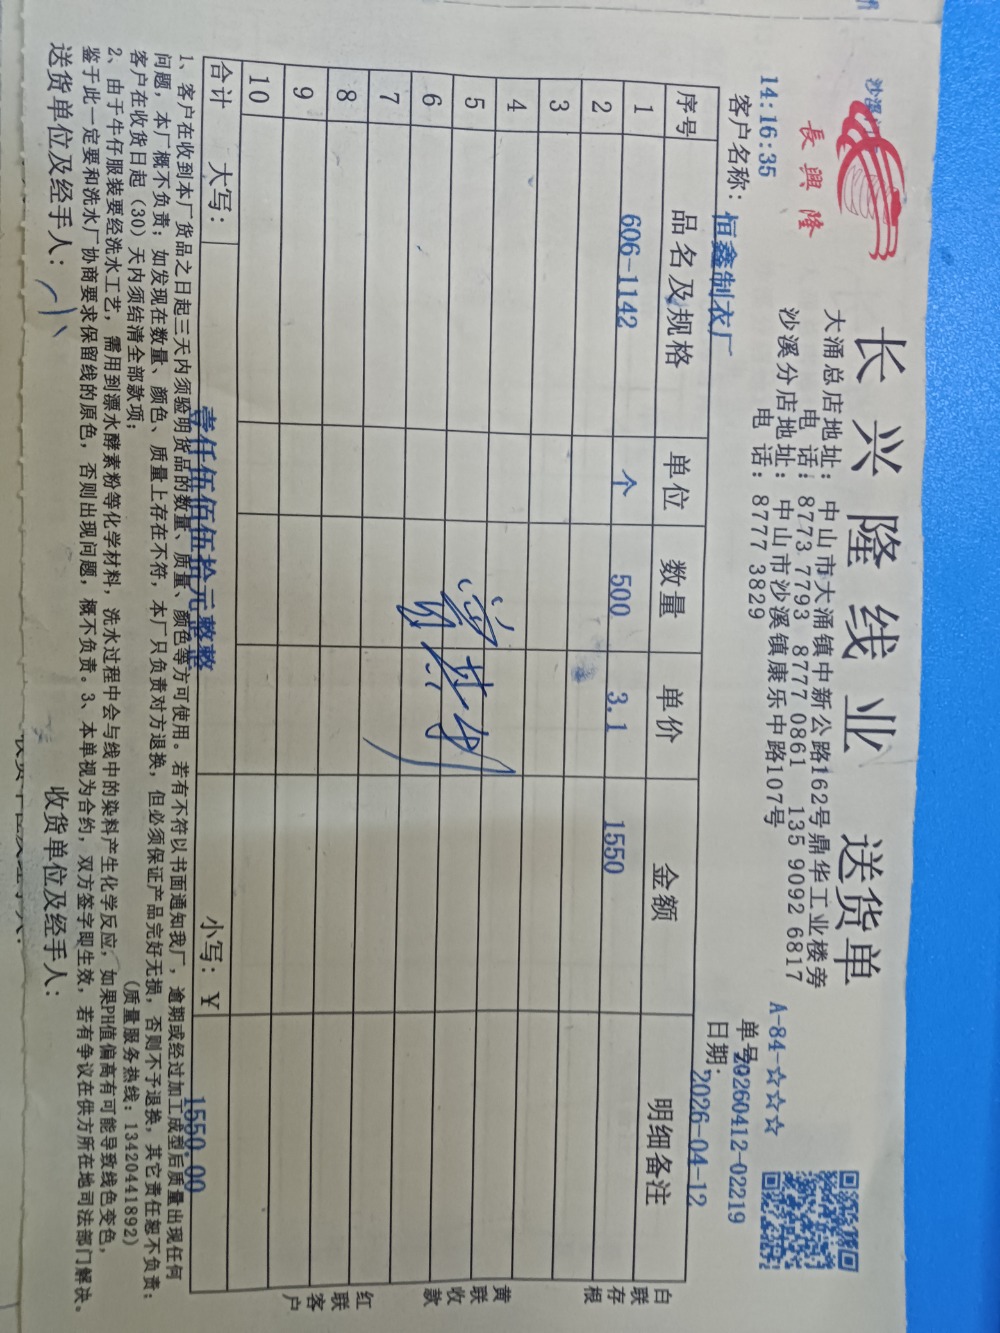 長興隆
长兴隆线业 送货单
大涌总店地址: 中山市大涌镇中新公路162号鼎华工业楼旁
电 话: 8773 7793 8777 0861 135 9092 6817
沙溪分店地址: 中山市沙溪镇康乐中路107号
电 话: 8777 3829
沙溪
14:16:35
A-84-☆☆☆☆
客户名称: 恒鑫制衣厂
单号: 20260412-02219
日期: 2026-04-12
序号 品名及规格 单位 数量 单价 金额 明细备注
1 606-1142 个 500 3.1 1550
2
3
4
5
6
7
8
9
10
合计 大写: 壹仟伍佰伍拾元整 小写: ¥ 1550.00
白联存根
黄联收款
红联客户
1、客户在收到本厂货品之日起三天内须验明货品的数量、质量、颜色等方可使用。若有不符以书面通知我厂, 逾期或经过加工成型后质量出现任何
问题, 本厂概不负责; 如发现在数量、颜色、质量上存在不符, 本厂只负责对方退换, 但必须保证产品完好无损, 否则不予退换, 其它责任恕不负责;
客户在收货日起 (30) 天内须结清全部款项; (质量服务热线: 13420441892)
2、由于牛仔服装要经洗水工艺, 需用到漂水酵素粉等化学材料, 洗水过程中会与线中的染料产生化学反应, 如果PH值偏高有可能导致线色变色,
鉴于此一定要和洗水厂协商要求保留线的原色, 否则出现问题, 概不负责。3、本单视为合约, 双方签字即生效, 若有争议在供方所在地司法部门解决。
送货单位及经手人: 收货单位及经手人: